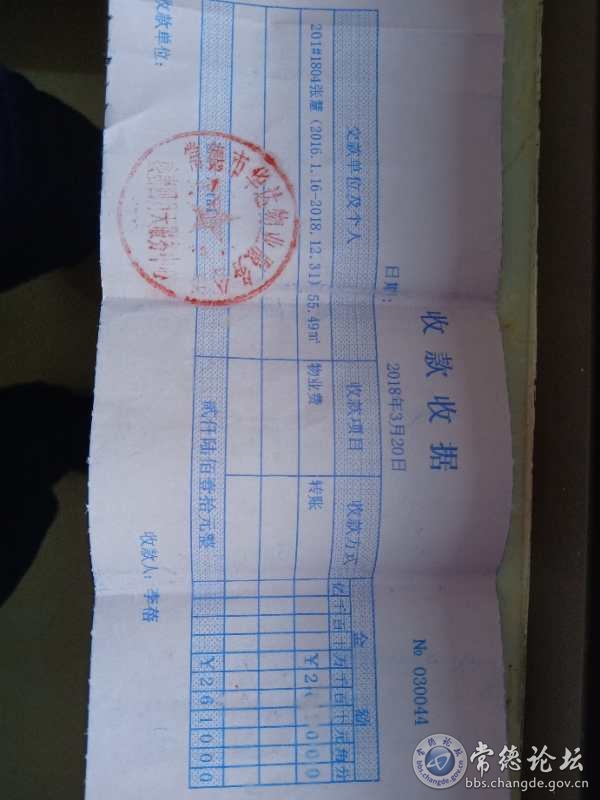 收款收据
№ 030044
日期： 2018年3月20日
交款单位及个人 收款项目 收款方式 金额
亿千百十万千百十元角分
201#1804张慧（2016.1.16-2018.12.31）55.49㎡ 物业费 转账 ¥2 000
贰仟陆佰壹拾元整 ¥261000
收款单位： 收款人：李蓓
市华达物业服务
常德论坛
bbs.changde.gov.cn